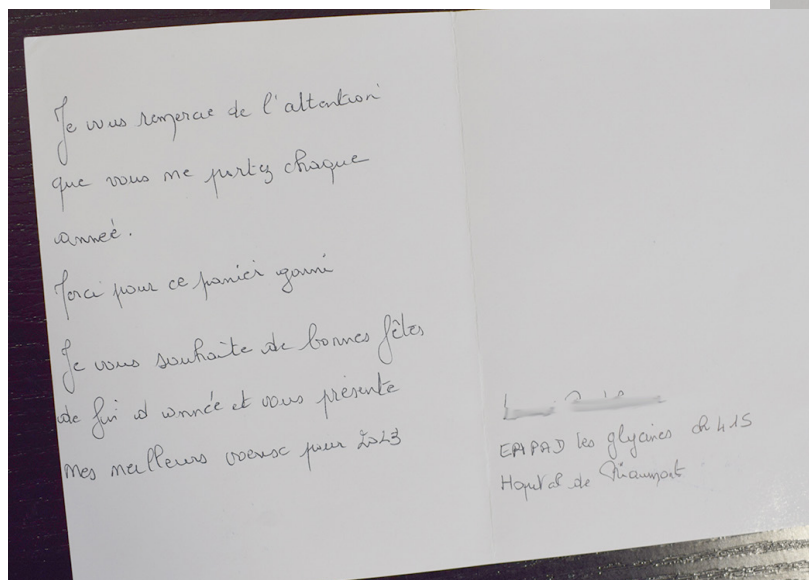 Je vous remercie de l'attention
que vous me portez chaque
année.
Merci pour ce panier garni
Je vous souhaite de bonnes fêtes
de fin d'année et vous présente
mes meilleurs voeux pour 2023
EHPAD les glycines ch 415
Hopital de